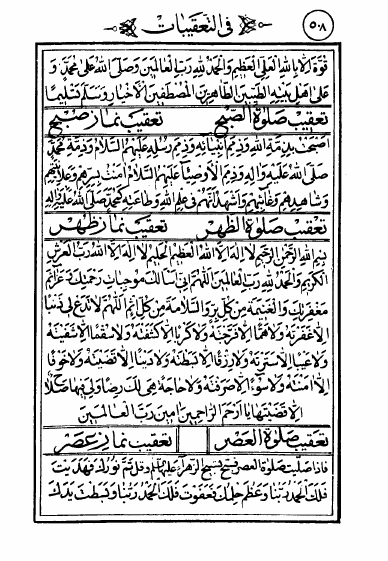 ٥٠٨
في التعقيبات
قوة الا بالله العلي العظيم والحمد لله رب العالمين وصلى الله على محمد و
على اهل بيته الطيبين الطاهرين المصطفين الاخيار وسلم تسليما
تعقيب صلوة الصبح تعقيب نماز صبح
اصبحت بذمة الله وذمم انبيائه وذمم رسله عليهم السلام وذمة محمد
صلى الله عليه واله وذمم الاوصياء عليهم السلام امنت بسرهم وعلانيتهم
وشاهدهم وغائبهم واشهد انهم في علم الله وطاعته كمحمد صلى الله عليه واله
تعقيب صلوة الظهر تعقيب نماز ظهر
بسم الله الرحمن الرحيم لا اله الا الله العظيم الحليم لا اله الا الله رب العرش
الكريم والحمد لله رب العالمين اللهم اني اسالك موجبات رحمتك وعزائم
مغفرتك والغنيمة من كل بر والسلامة من كل اثم اللهم لا تدع لي ذنبا
الا غفرته ولا هما الا فرجته ولا كربا الا كشفته ولا سقما الا شفيته
ولا عيبا الا سترته ولا رزقا الا بسطته ولا دينا الا قضيته ولا خوفا
الا امنته ولا سوءا الا صرفته ولا حاجة هي لك رضا ولي فيها صلاح
الا قضيتها يا ارحم الراحمين امين رب العالمين
تعقيب صلوة العصر تعقيب نماز عصر
فاذا صليت صلوة العصر فسبح تسبيح الزهراء عليها السلام وقل تم نورك فهديت
فلك الحمد ربنا وعظم حلمك فعفوت فلك الحمد ربنا وبسطت يدك